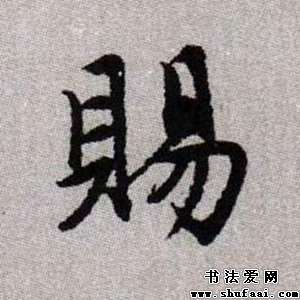 賜
书法爱网
www.shufaai.com